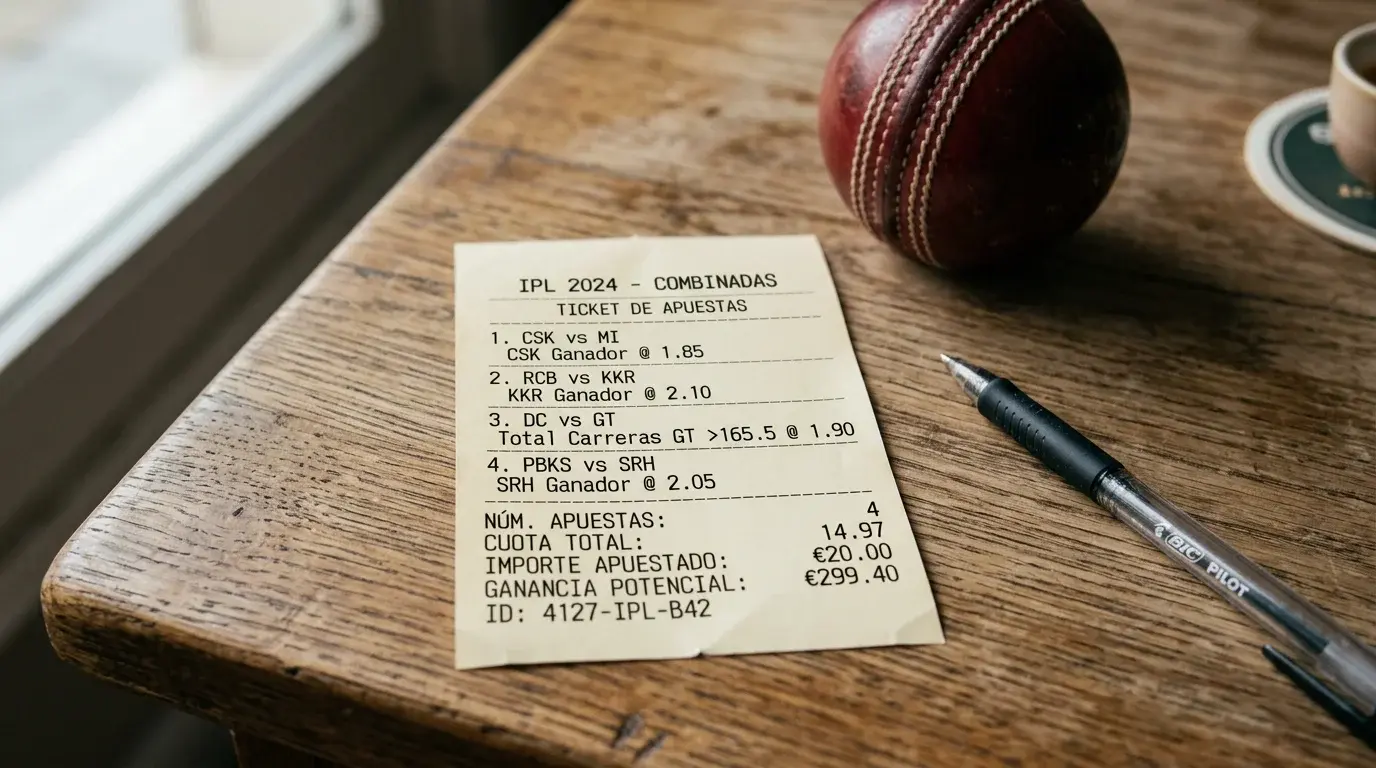 IPL 2024 - COMBINADAS
TICKET DE APUESTAS
1. CSK vs MI
CSK Ganador @ 1.85
2. RCB vs KKR
KKR Ganador @ 2.10
3. DC vs GT
Total Carreras GT >165.5 @ 1.90
4. PBKS vs SRH
SRH Ganador @ 2.05
NÚM. APUESTAS: 4
CUOTA TOTAL: 14.97
IMPORTE APUESTADO: €20.00
GANANCIA POTENCIAL: €299.40
ID: 4127-IPL-B42
BIC PILOT